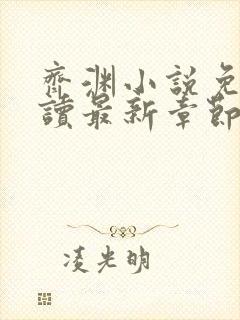 齊淵小說免
讀最新章節
凌光明